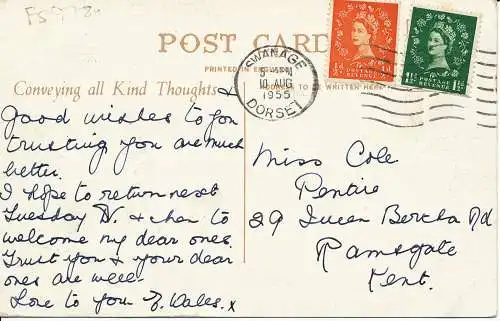 FS 778
POST CARD
PRINTED IN ENGLAND
ADDRESS TO BE WRITTEN HERE
SWANAGE
5- PM
10 AUG
1955
DORSET
½d
POSTAGE REVENUE
1½d
POSTAGE REVENUE
Conveying all Kind Thoughts &
Good wishes to you
trusting you are much
better.
I hope to return next
Tuesday D.V. & then to
welcome my dear ones.
Trust you & your dear
ones are well
Love to you E. Wales. x
Miss Cole
Pentire
29 Queen Bertha Rd
Ramsgate
Kent.